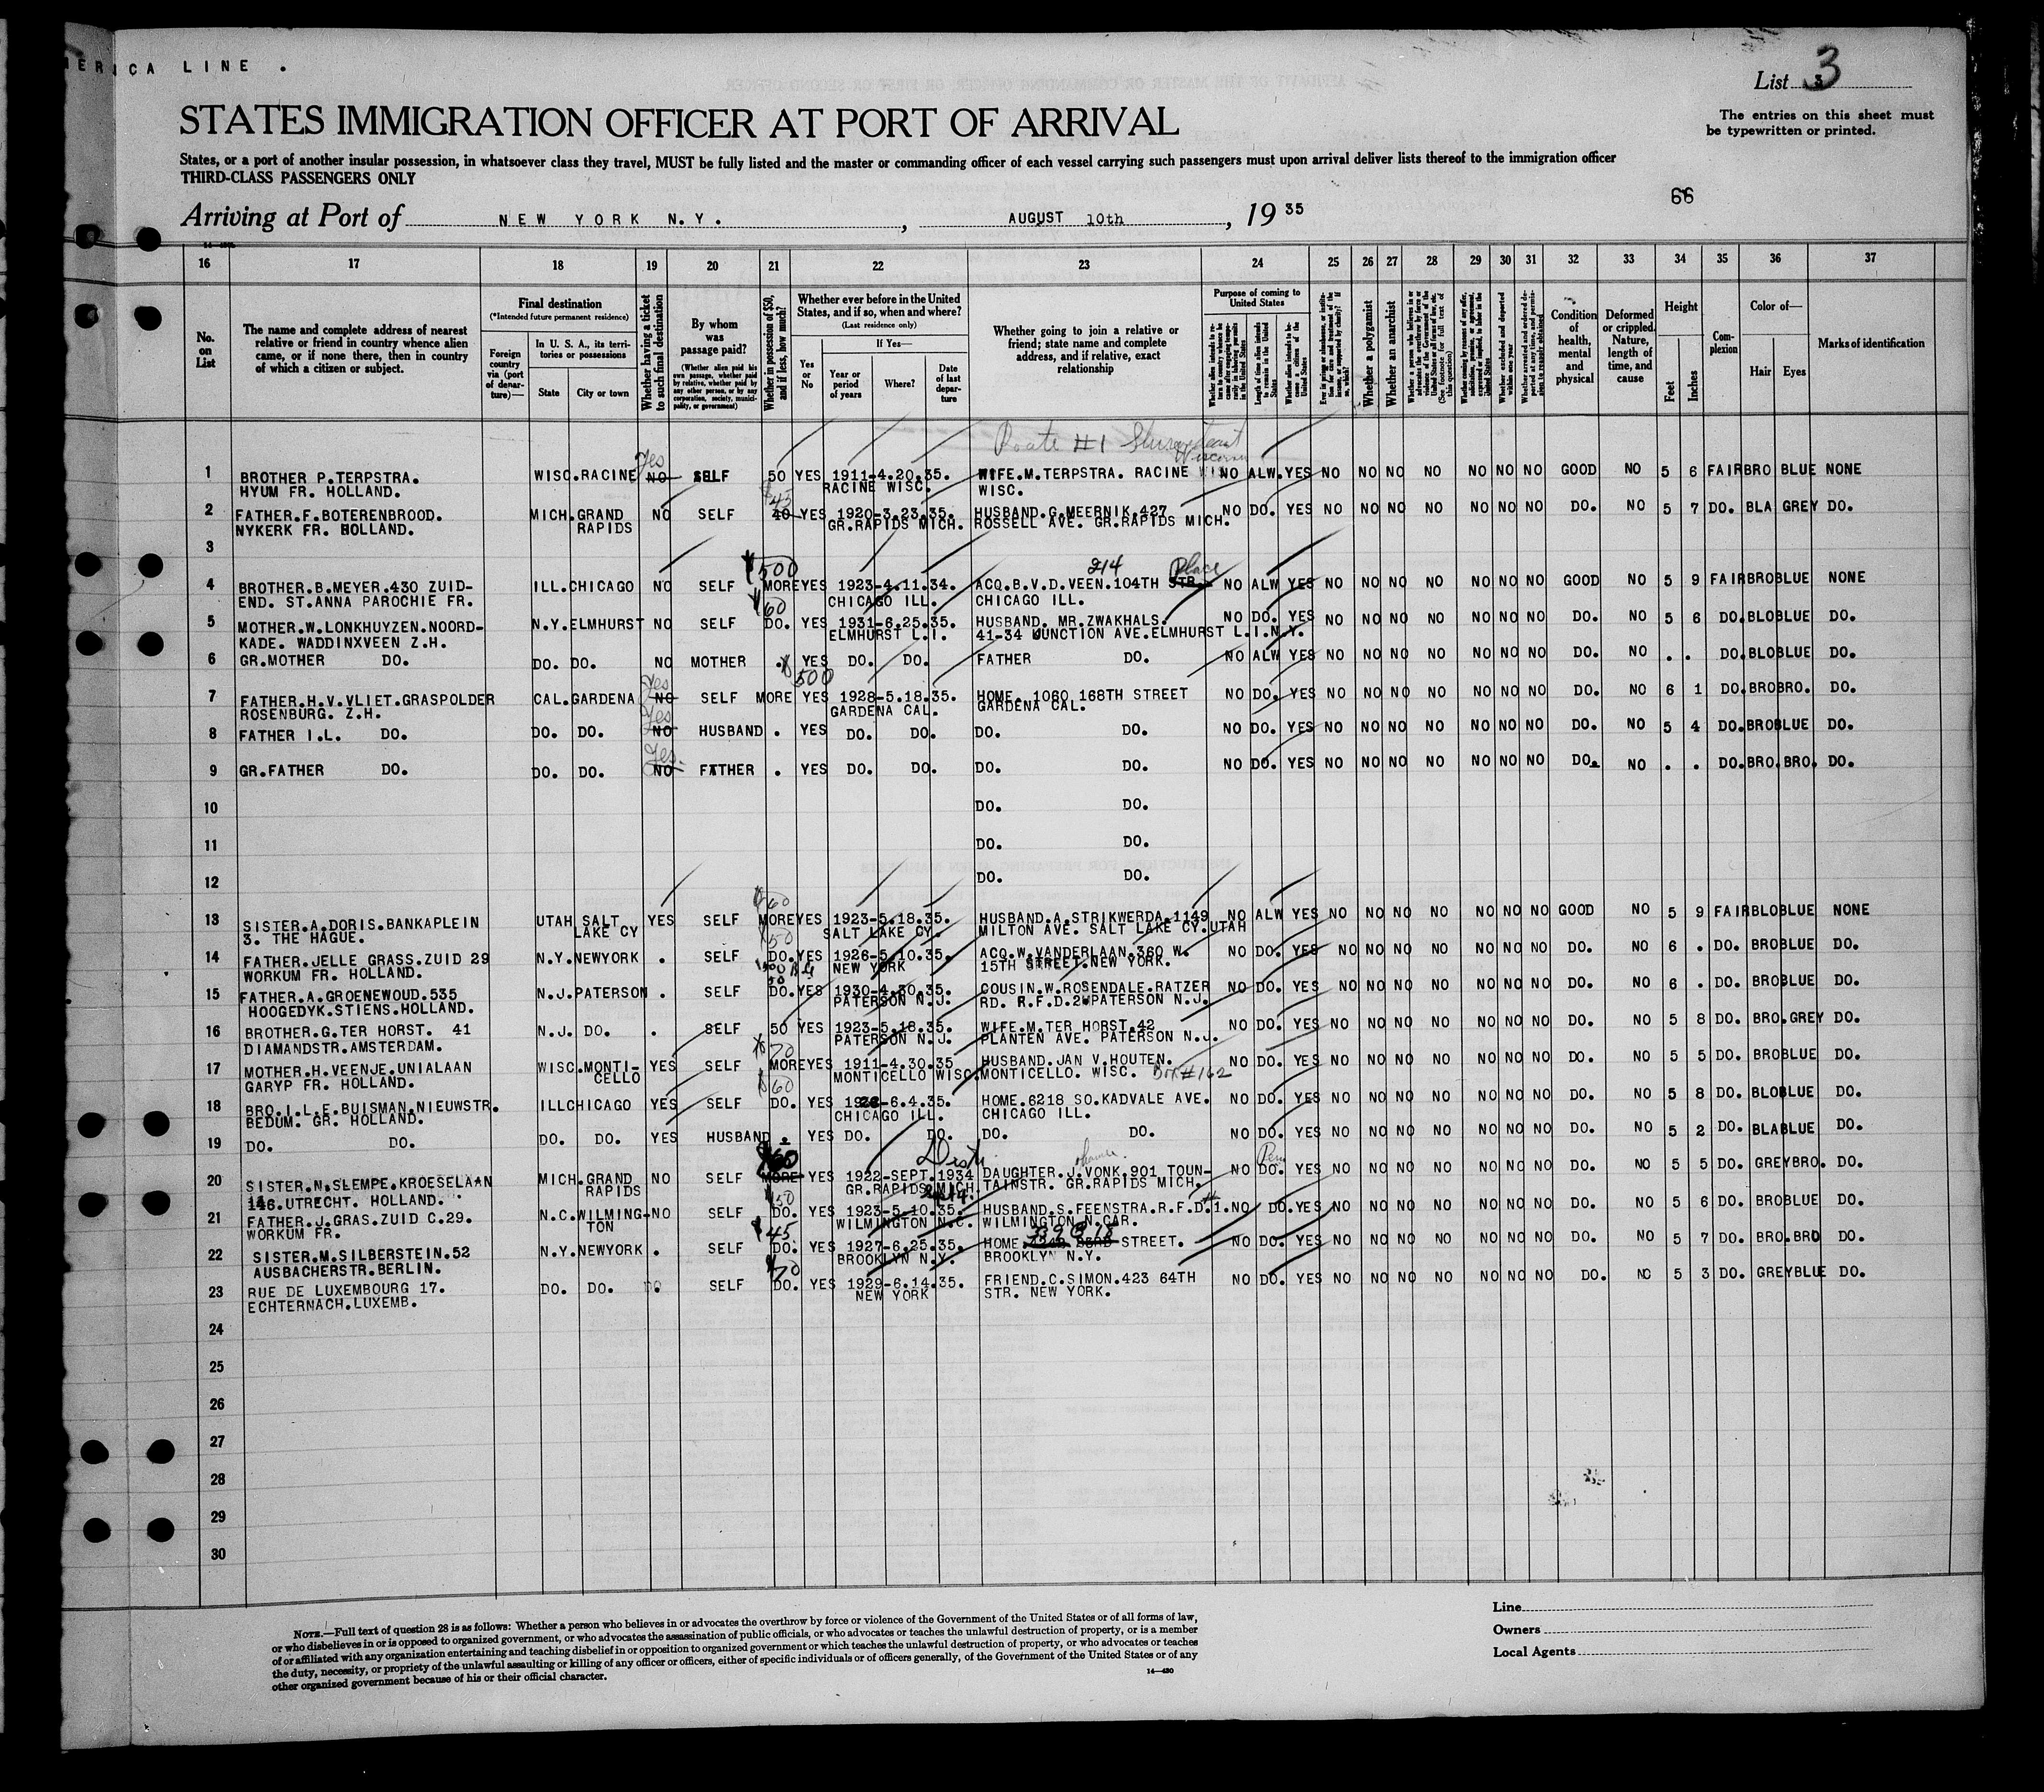 ERICA LINE .
List 3
3
STATES IMMIGRATION OFFICER AT PORT OF ARRIVAL
The entries on this sheet must
be typewritten or printed.
States, or a port of another insular possession, in whatsoever class they travel, MUST be fully listed and the master or commanding officer of each vessel carrying such passengers must upon arrival deliver lists thereof to the immigration officer
THIRD-CLASS PASSENGERS ONLY
66
Arriving at Port of NEW YORK N.Y. , AUGUST 10th , 1935
16 17 18 19 20 21 22 23 24 25 26 27 28 29 30 31 32 33 34 35 36 37
No. on List
The name and complete address of nearest relative or friend in country whence alien came, or if none there, then in country of which a citizen or subject.
Final destination
(*Intended future permanent residence)
Foreign country via (port of departure)—
In U. S. A., its territories or possessions
State City or town
Whether having a ticket to such final destination
By whom was passage paid?
(Whether alien paid his own passage, whether paid by relative, whether paid by any other person, or by any corporation, society, municipality, or government)
Whether in possession of $50, and if less, how much?
Whether ever before in the United States, and if so, when and where?
(Last residence only)
Yes or No
If Yes—
Year or period of years Where? Date of last departure
Whether going to join a relative or friend; state name and complete address, and if relative, exact relationship
Purpose of coming to United States
Length of time alien intends to remain in the United States
Whether alien intends to become a citizen of the United States
Whether a polygamist
Whether an anarchist
Condition of health, mental and physical
Deformed or crippled. Nature, length of time, and cause
Height
Feet Inches
Complexion
Color of—
Hair Eyes
Marks of identification
Route #1
Wisconsin
1 BROTHER P.TERPSTRA. WISC.RACINE NO Yes SELF 50 YES 1911-4.20.35. WIFE.M.TERPSTRA. RACINE NO ALW. YES NO NO NO NO NO NO NO GOOD NO 5 6 FAIR BRO BLUE NONE
HYUM FR. HOLLAND. RACINE WISC. WISC.
2 FATHER.F.BOTERENBROOD. MICH.GRAND NO SELF 40 45 YES 1920-3.23.35. HUSBAND.G.MEERNIK.427 NO DO. YES NO NO NO NO NO NO NO DO. NO 5 7 DO. BLA GREY DO.
NYKERK FR. HOLLAND. RAPIDS GR.RAPIDS MICH. ROSSELL AVE. GR.RAPIDS MICH.
3
$500 214 Place
4 BROTHER.B.MEYER.430 ZUID- ILL.CHICAGO NO SELF MORE YES 1923-4.11.34. ACQ.B.V.D.VEEN.104TH STR. NO ALW YES NO NO NO NO NO NO NO GOOD NO 5 9 FAIR BRO BLUE NONE
END. ST.ANNA PAROCHIE FR. CHICAGO ILL. CHICAGO ILL.
$60
5 MOTHER.W.LONKHUYZEN.NOORD- N.Y.ELMHURST NO SELF DO. YES 1931-6.25.35. HUSBAND. MR.ZWAKHALS. NO DO. YES NO NO NO NO NO NO NO DO. NO 5 6 DO. BLO BLUE DO.
KADE. WADDINXVEEN Z.H. ELMHURST L.I. 41-34 JUNCTION AVE.ELMHURST L.I.N.Y.
6 GR.MOTHER DO. DO. DO. NO MOTHER . YES DO. DO. FATHER DO. NO ALW YES NO NO NO NO NO NO NO DO. NO . . DO. BLO BLUE DO.
$500
7 FATHER.H.V.VLIET.GRASPOLDER CAL.GARDENA NO Yes SELF MORE YES 1928-5.18.35. HOME. 1060 168TH STREET NO DO. YES NO NO NO NO NO NO NO DO. NO 6 1 DO. BRO BRO. DO.
ROSENBURG. Z.H. GARDENA CAL. GARDENA CAL.
8 FATHER I.L. DO. DO. DO. NO Yes HUSBAND . YES DO. DO. DO. DO. NO DO. YES NO NO NO NO NO NO NO DO. NO 5 4 DO. BRO BLUE DO.
9 GR.FATHER DO. DO. DO. NO Yes FATHER . YES DO. DO. DO. DO. NO DO. YES NO NO NO NO NO NO NO DO. NO . . DO. BRO. BRO. DO.
10 DO. DO.
11 DO. DO.
12 DO. DO.
$60
13 SISTER.A.DORIS.BANKAPLEIN UTAH SALT YES SELF MORE YES 1923-5.18.35. HUSBAND.A.STRIKWERDA.1149 NO ALW YES NO NO NO NO NO NO NO GOOD NO 5 9 FAIR BLO BLUE NONE
3. THE HAGUE. LAKE CY SALT LAKE CY. MILTON AVE. SALT LAKE CY.UTAH
$50
14 FATHER.JELLE GRASS.ZUID 29 N.Y.NEWYORK . SELF DO. YES 1926-5.10.35. ACQ.W.VANDERLAAN.360 W. NO DO. YES NO NO NO NO NO NO NO DO. NO 6 . DO. BRO BLUE DO.
WORKUM FR. HOLLAND. NEW YORK 15TH STREET.NEW YORK.
50
15 FATHER.A.GROENEWOUD.535 N.J.PATERSON . SELF DO. YES 1930-4.30.35. COUSIN.W.ROSENDALE.RATZER NO DO. YES NO NO NO NO NO NO NO DO. NO 6 . DO. BRO BLUE DO.
HOOGEDYK.STIENS.HOLLAND. PATERSON N.J. RD. R.F.D.2 PATERSON N.J.
16 BROTHER.G.TER HORST. 41 N.J. DO. . SELF 50 YES 1923-5.18.35. WIFE.M.TER HORST.42 NO DO. YES NO NO NO NO NO NO NO DO. NO 5 8 DO. BRO. GREY DO.
DIAMANDSTR.AMSTERDAM. PATERSON N.J. PLANTEN AVE. PATERSON N.J.
$70
17 MOTHER.H.VEENJE.UNIALAAN WISC.MONTI- YES SELF MORE YES 1911-4.30.35 HUSBAND.JAN V.HOUTEN. NO DO. YES NO NO NO NO NO NO NO DO. NO 5 5 DO. BRO BLUE DO.
GARYP FR. HOLLAND. CELLO MONTICELLO WISC. MONTICELLO. WISC. Box #162
$60
18 BRO.I.L.E.BUISMAN.NIEUWSTR. ILLCHICAGO YES SELF DO. YES 1928-6.4.35. HOME.6218 SO.KADVALE AVE. NO DO. YES NO NO NO NO NO NO NO DO. NO 5 8 DO. BLO BLUE DO.
BEDUM. GR. HOLLAND. CHICAGO ILL. CHICAGO ILL.
19 DO. DO. DO. DO. YES HUSBAND . YES DO. DO. DO. DO. NO DO. YES NO NO NO NO NO NO NO DO. NO 5 2 DO. BLA BLUE DO.
$60
20 SISTER.N.SLEMPE.KROESELAAN MICH.GRAND NO SELF MORE YES 1922-SEPT.1934 DAUGHTER.J.VONK.901 TOUN- NO DO. YES NO NO NO NO NO NO NO DO. NO 5 5 DO. GREY BRO. DO.
146.UTRECHT. HOLLAND. RAPIDS GR.RAPIDS MICH. TAINSTR. GR.RAPIDS MICH.
$50
21 FATHER.J.GRAS.ZUID C.29. N.C.WILMING- NO SELF DO. YES 1923-5.10.35. HUSBAND.S.FEENSTRA.R.F.D.1. NO DO. YES NO NO NO NO NO NO NO DO. NO 5 6 DO. BRO BLUE DO.
WORKUM FR. TON WILMINGTON N.C. WILMINGTON N.CAR.
$45
22 SISTER.M.SILBERSTEIN.52 N.Y.NEWYORK . SELF DO. YES 1927-6.25.35. HOME. STREET. NO DO. YES NO NO NO NO NO NO NO DO. NO 5 7 DO. BRO. BRO DO.
AUSBACHERSTR.BERLIN. BROOKLYN N.Y. BROOKLYN N.Y.
$70
23 RUE DE LUXEMBOURG 17. DO. DO. DO. SELF DO. YES 1929-6.14.35. FRIEND.C.SIMON.423 64TH NO DO. YES NO NO NO NO NO NO NO DO. NO 5 3 DO. GREY BLUE DO.
ECHTERNACH.LUXEMB. NEW YORK STR. NEW YORK.
24
25
26
27
28
29
30
NOTE.—Full text of question 28 is as follows: Whether a person who believes in or advocates the overthrow by force or violence of the Government of the United States or of all forms of law,
or who disbelieves in or is opposed to organized government, or who advocates the assassination of public officials, or who advocates or teaches the unlawful destruction of property, or is a member
of or affiliated with any organization entertaining and teaching disbelief in or opposition to organized government or which teaches the unlawful destruction of property, or who advocates or teaches
the duty, necessity, or propriety of the unlawful assaulting or killing of any officer or officers, either of specific individuals or of officers generally, of the Government of the United States or of any
other organized government because of his or their official character.
14—430
Line
Owners
Local Agents